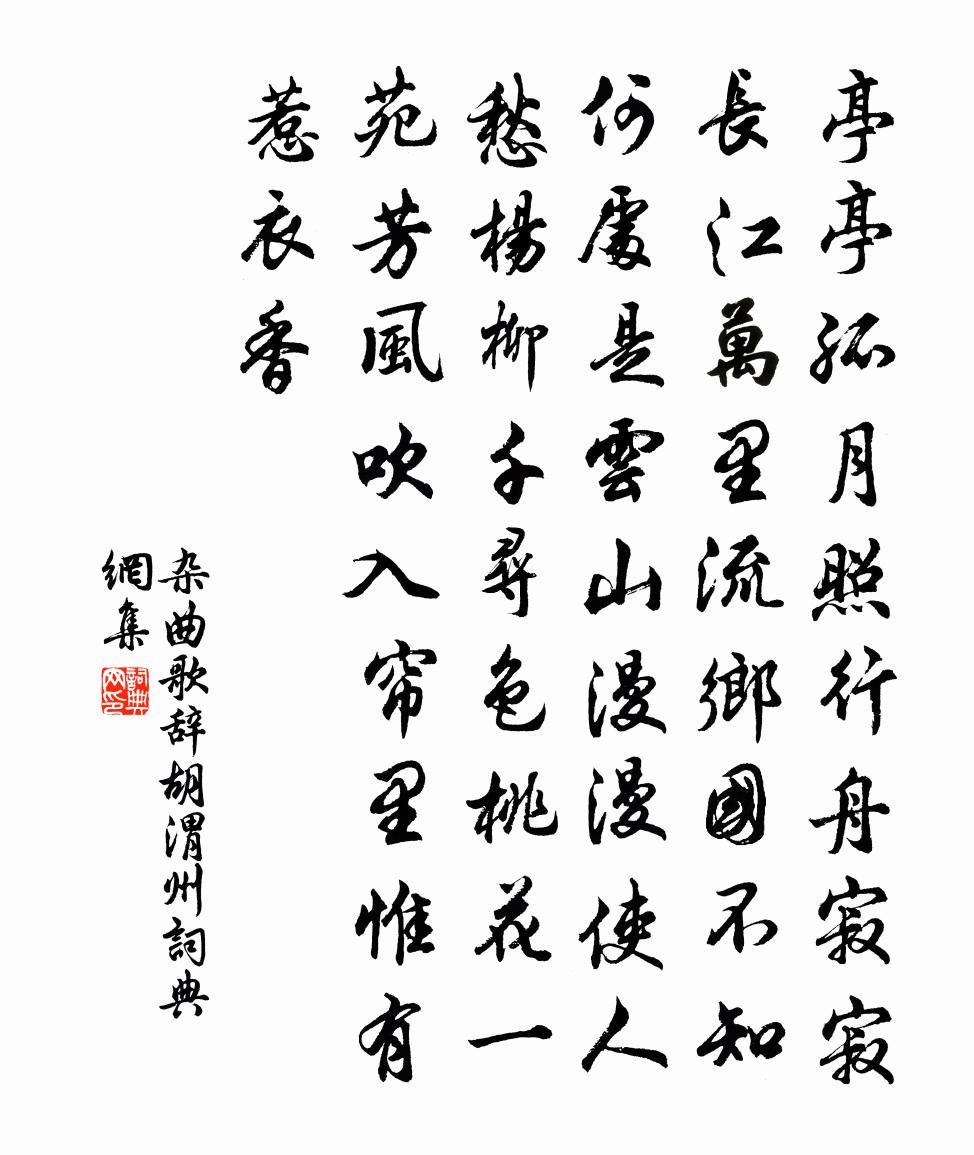 亭亭孤月照行舟寂寂
長江萬里流鄉國不知
何處是雲山漫漫使人
愁楊柳千尋色桃花一
苑芳風吹入帘里惟有
惹衣香
杂曲歌辞胡渭州詞典
網集
詞典
网印